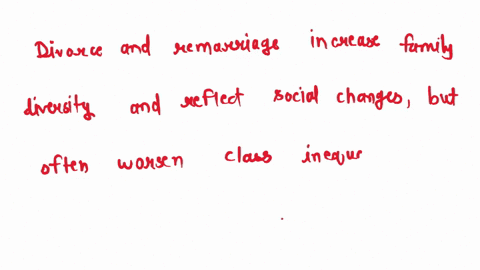 Divorce and remarriage increase family
diversity and reflect social changes, but
often worsen class inequ